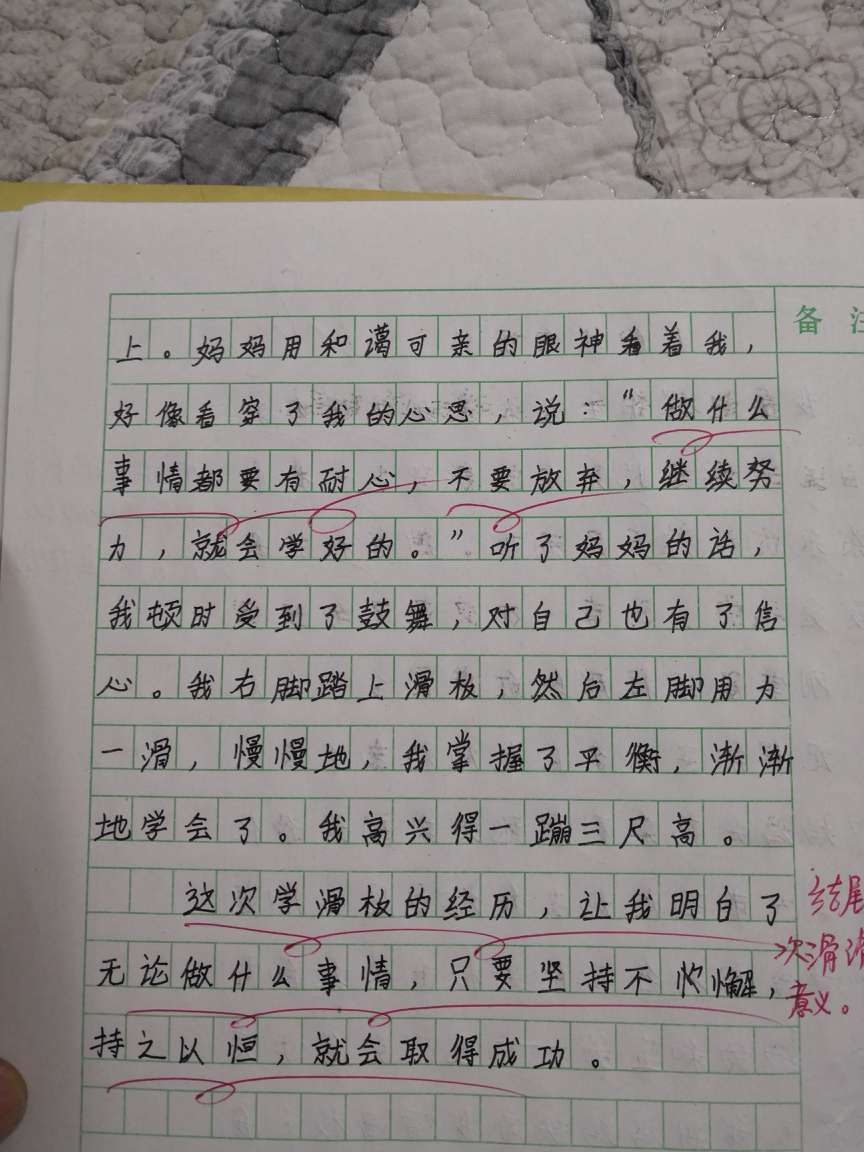 备注
上。妈妈用和蔼可亲的眼神看着我，
好像看穿了我的心思，说：“做什么
事情都要有耐心，不要放弃，继续努
力，就会学好的。”听了妈妈的话，
我顿时受到了鼓舞，对自己也有了信
心。我右脚踏上滑板，然后左脚用力
一滑，慢慢地，我掌握了平衡，渐渐
地学会了。我高兴得一蹦三尺高。
这次学滑板的经历，让我明白了
无论做什么事情，只要坚持不懈，
持之以恒，就会取得成功。
结尾
次滑滑
意义。